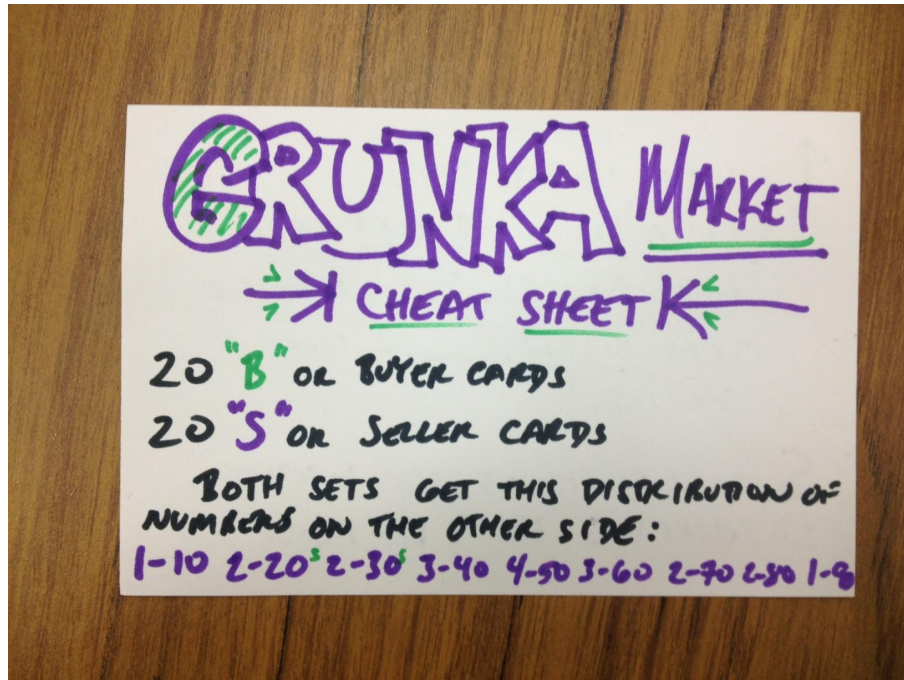 GRUNKA MARKET
CHEAT SHEET
20 "B" OR BUYER CARDS
20 "S" OR SELLER CARDS
BOTH SETS GET THIS DISTRIBUTION OF
NUMBERS ON THE OTHER SIDE:
1-10 2-20s 2-30s 3-40 4-50 3-60 2-70 2-80